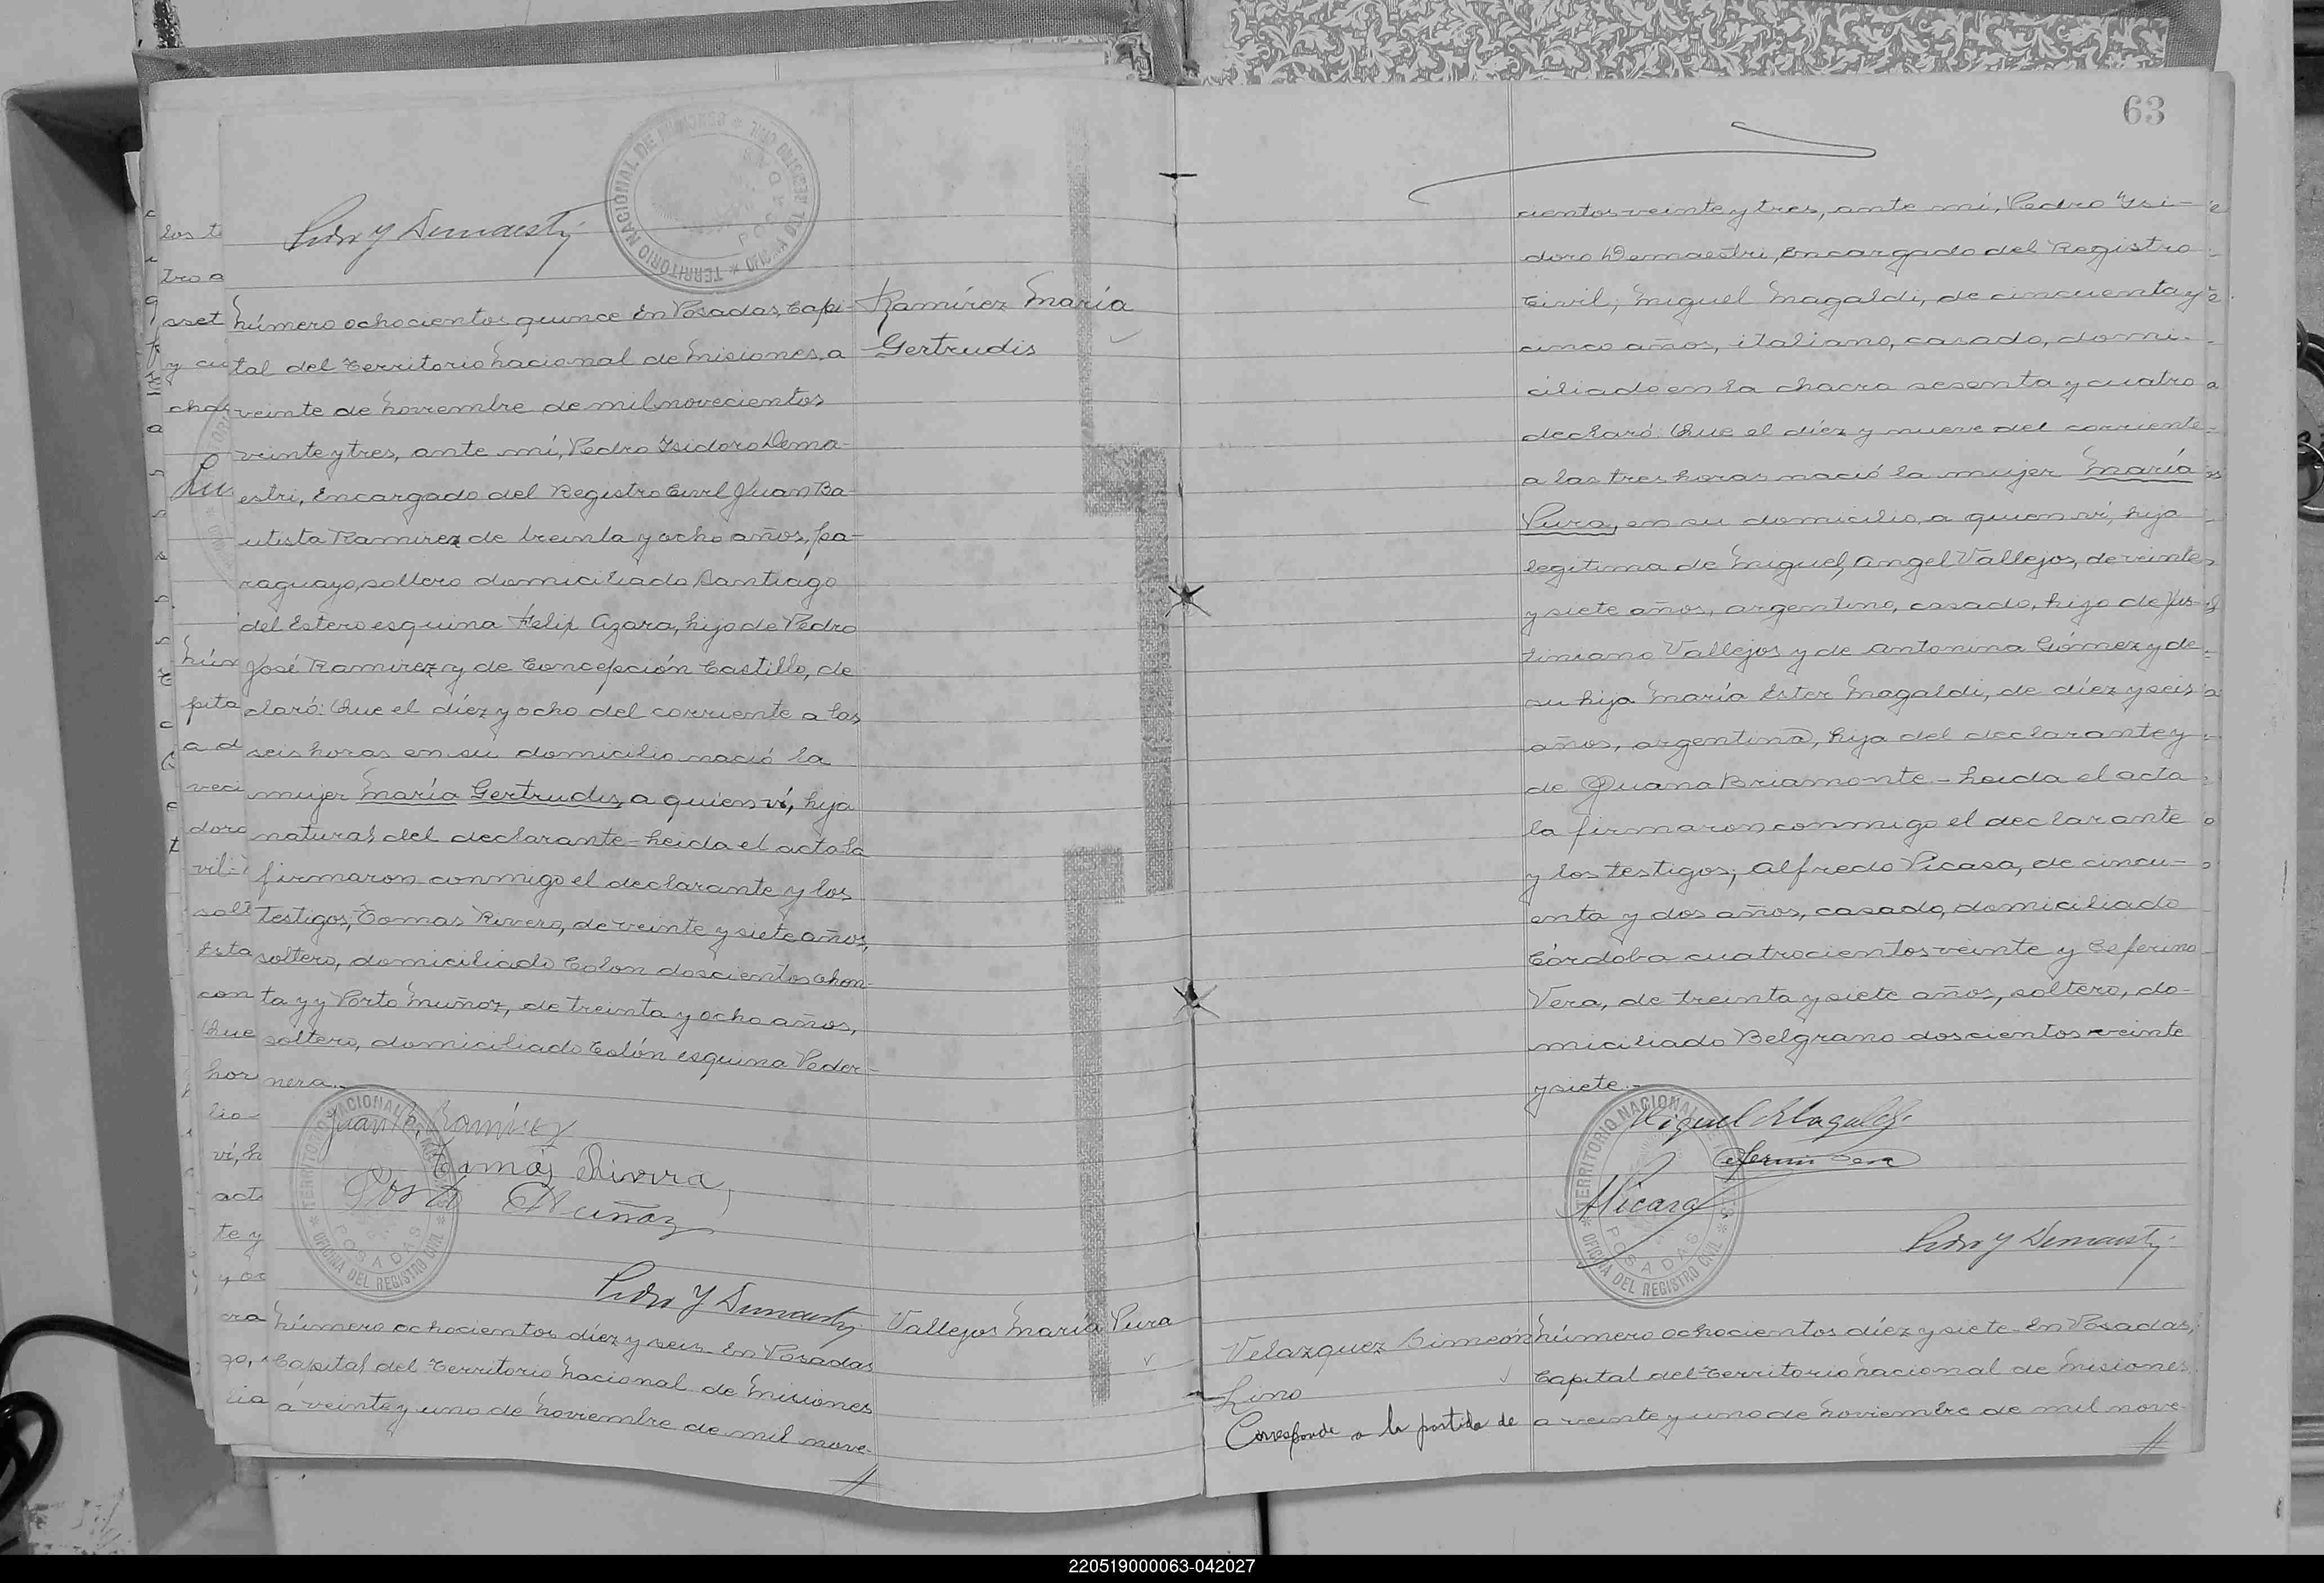 Pedro Y Demaestri
TERRITORIO NACIONAL DE MISIONES * OFICINA DEL REGISTRO CIVIL *
POSADAS
Ramírez María
Gertrudis
Número ochocientos quince En Posadas, Capi-
tal del Territorio Nacional de Misiones, a
veinte de Noviembre de mil novecientos
veinte y tres, ante mí, Pedro Isidoro Dema-
estri, Encargado del Registro Civil Juan Ba-
utista Ramirez de treinta y ocho años, pa-
raguayo, soltero domiciliado Santiago
del Estero esquina Felix Azara, hijo de Pedro
José Ramírez y de Concepción Castillo, de
claró: Que el díez y ocho del corriente a las
seis horas en su domicilio nació la
mujer María Gertrudis, a quien ví, hija
natural del declarante - Leida el acta la
firmaron conmigo el declarante y los
testigos; Tomas Rivero, de veinte y siete años,
soltero, domiciliado Colon doscientos ochen-
ta y y Porto Muñoz, de treinta y ocho años,
soltero, domiciliado Colón esquina Peder-
nera.-
Juan B. Ramírez
Tomás Rivera
Porto Muñoz
TERRITORIO NACIONAL DE MISIONES * OFICINA DEL REGISTRO CIVIL *
POSADAS
Pedro Y Demaestri
Vallejos María Pura
Número ochocientos díez y seis - En Posadas
Capital del Territorio Nacional de Misiones
a veinte y uno de Noviembre de mil nove-
//
63
cientos veinte y tres, ante mí, Pedro Ysi-
doro Demaestri, Encargado del Registro
Civil; Miguel Magaldi, de cincuenta y
cinco años, italiano, casado, domi-
ciliado en la chacra sesenta y cuatro
declaró: Que el díez y nueve del corriente
a las tres horas nació la mujer María
Pura, en su domicilio, a quien ví, hija
legitima de Miguel Angel Vallejos, de veinte
y siete años, argentino, casado, hijo de Jus-
tiniano Vallejos y de Antonina Gómez y de
su hija María Ester Magaldi, de díez y seis
años, argentina, hija del declarante y
de Juana Briamonte - Leida el acta
la firmaron conmigo el declarante
y los testigos; Alfredo Picasa, de cincu-
enta y dos años, casado, domiciliado
Córdoba cuatrocientos veinte y Ceferino
Vera, de treinta y siete años, soltero, do-
miciliado Belgrano doscientos veinte
y siete.-
Miguel Magaldi
Ceferino Vera
TERRITORIO NACIONAL DE MISIONES * OFICINA DEL REGISTRO CIVIL *
POSADAS
Pedro Y Demaestri
Velazquez Simeón
Lino
Corresponde a la partida de
Número ochocientos díez y siete - En Posadas,
Capital del Territorio Nacional de Misiones
a veinte y uno de Noviembre de mil nove-
//
220519000063-042027